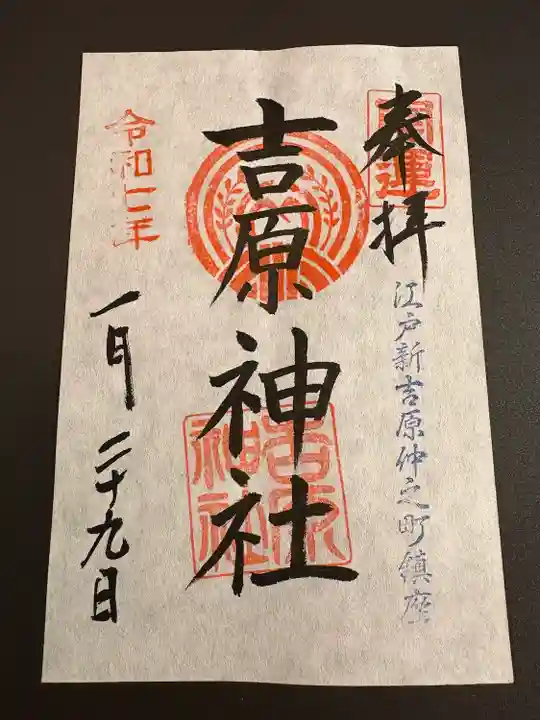 開運
奉拝
江戸新吉原仲之町鎮座
吉原神社
吉原
神社
令和二年
一月二十九日